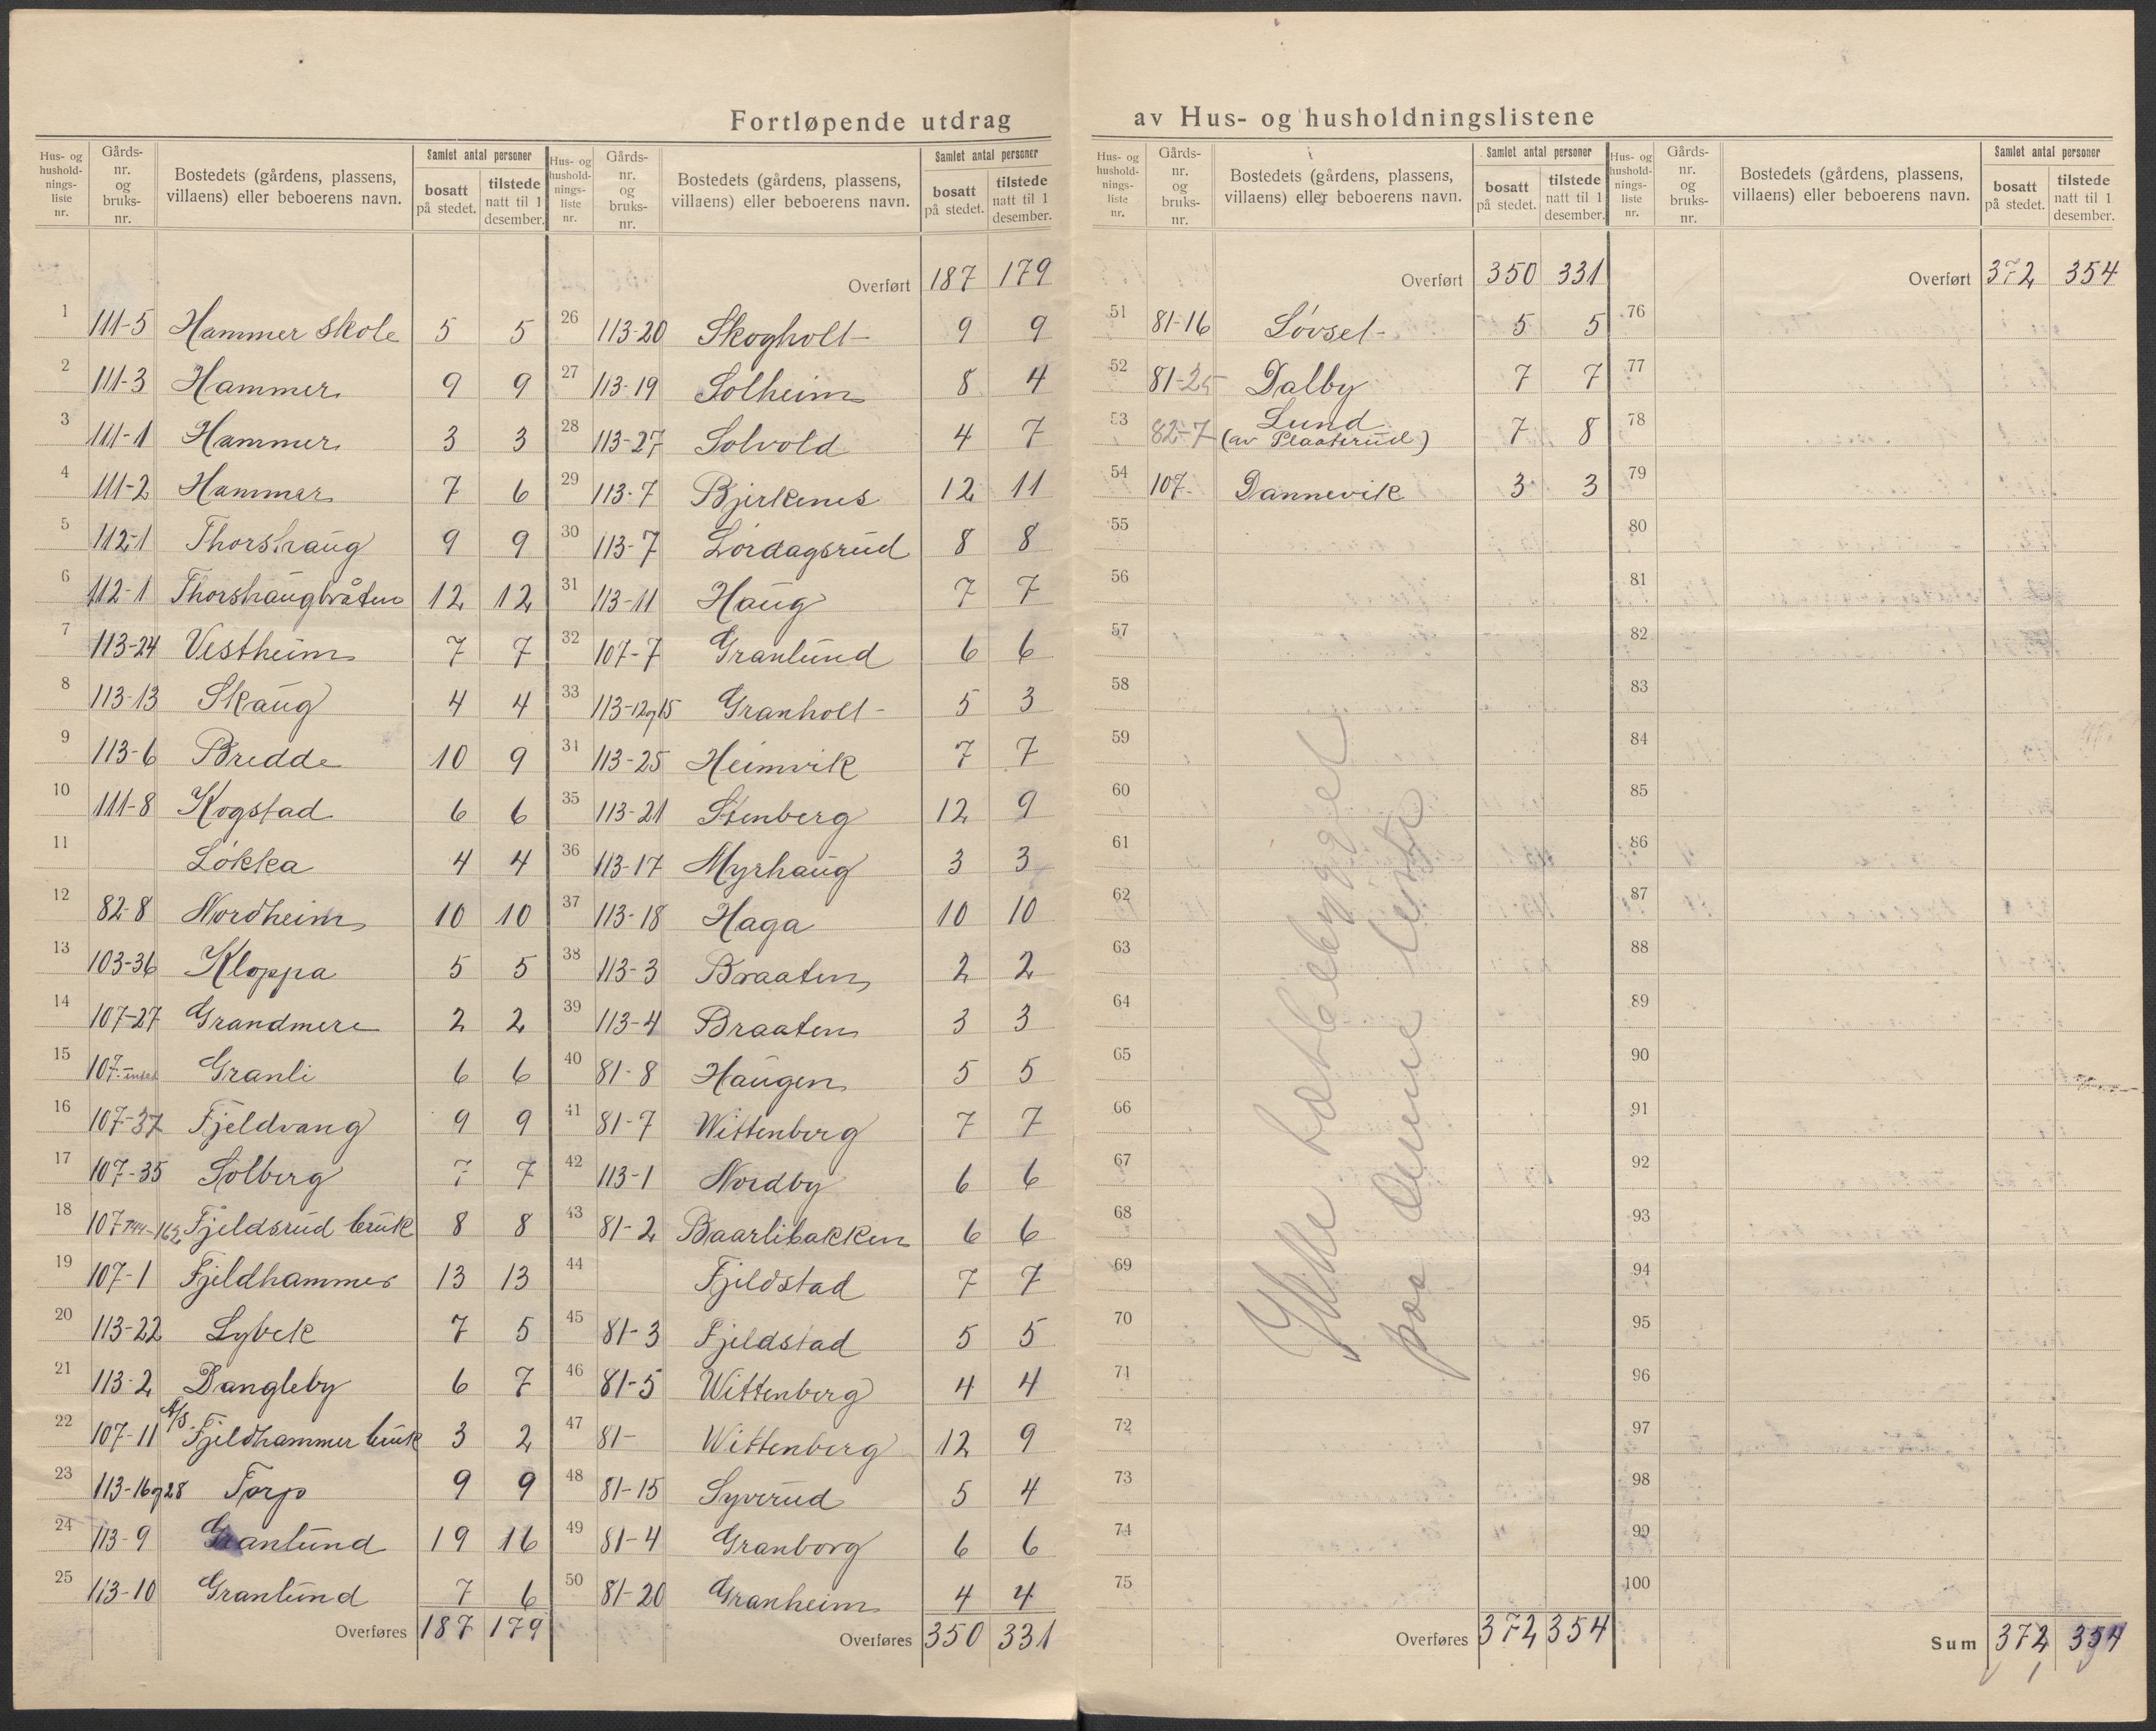 Fortløpende utdrag
Hus- og hushold-nings-liste nr. Gårds-nr. og bruks-nr. Bostedets (gårdens, plassens, villaens) eller beboerens navn. Samlet antal personer bosatt på stedet. tilstede natt til 1 desember.
1 111-5 Hammer skole 5 5
2 111-3 Hammer 9 9
3 111-1 Hammer 3 3
4 111-2 Hammer 7 6
5 112-1 Thorshaug 9 9
6 112-1 Thorshaugbråten 12 12
7 113-24 Vestheim 7 7
8 113-13 Skaug 4 4
9 113-6 Bredde 10 9
10 111-8 Kogstad 6 6
11 Løkka 4 4
12 82-8 Nordheim 10 10
13 103-36 Kloppa 5 5
14 107-27 Grandmere 2 2
15 107- Granli 6 6
16 107-37 Fjeldvang 9 9
17 107-35 Solberg 7 7
18 107 Fjeldsrud bruk 8 8
19 107-1 Fjeldhammer 13 13
20 113-22 Lybek 7 5
21 113-2 Dangleby 6 7
22 107-11 A/S Fjeldhammer bruk 3 2
23 113-16og28 Torp 9 9
24 113-9 Granlund 19 16
25 113-10 Granlund 7 6
Overføres 187 179
Hus- og hushold-nings-liste nr. Gårds-nr. og bruks-nr. Bostedets (gårdens, plassens, villaens) eller beboerens navn. Samlet antal personer bosatt på stedet. tilstede natt til 1 desember.
Overført 187 179
26 113-20 Skogholt 9 9
27 113-19 Solheim 8 4
28 113-27 Solvold 4 7
29 113-7 Bjerkenes 12 11
30 113-7 Lørdagsrud 8 8
31 113-11 Haug 7 7
32 107-7 Granlund 6 6
33 113-12og15 Granholt 5 3
31 113-25 Heimvik 7 7
35 113-21 Stenberg 12 9
36 113-17 Myrhaug 3 3
37 113-18 Haga 10 10
38 113-3 Braaten 2 2
39 113-4 Braaten 3 3
40 81-8 Haugen 5 5
41 81-7 Wittenberg 7 7
42 113-1 Nordby 6 6
43 81-2 Baarlibakken 6 6
44 Fjeldstad 7 7
45 81-3 Fjeldstad 5 5
46 81-5 Wittenberg 4 4
47 81- Wittenberg 12 9
48 81-15 Syverud 5 4
49 81-4 Granborg 6 6
50 81-20 Granheim 4 4
Overføres 350 331
av Hus- og husholdningslistene
Hus- og hushold-nings-liste nr. Gårds-nr. og bruks-nr. Bostedets (gårdens, plassens, villaens) eller beboerens navn. Samlet antal personer bosatt på stedet. tilstede natt til 1 desember.
Overført 350 331
51 81-16 Løvset 5 5
52 81-25 Dalby 7 7
53 82-7 Lund (av Plaaterud) 7 8
54 107- Dannevik 3 3
55
56
57
58
59
60
61
62
63
64
65
66
67
68
69
70
71
72
73
74
75
Ikke tætbebygget
paa denne liste
Overføres 372 354
Hus- og hushold-nings-liste nr. Gårds-nr. og bruks-nr. Bostedets (gårdens, plassens, villaens) eller beboerens navn. Samlet antal personer bosatt på stedet. tilstede natt til 1 desember.
Overført 372 354
76
77
78
79
80
81
82
83
84
85
86
87
88
89
90
91
92
93
94
95
96
97
98
99
100
Sum 372 354